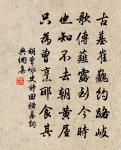 古墓崔巍约路岐
歌传薤露到今时
也知不去朝黄屋
只为曾烹郦食其
胡曾咏史诗田横墓词
兴国集